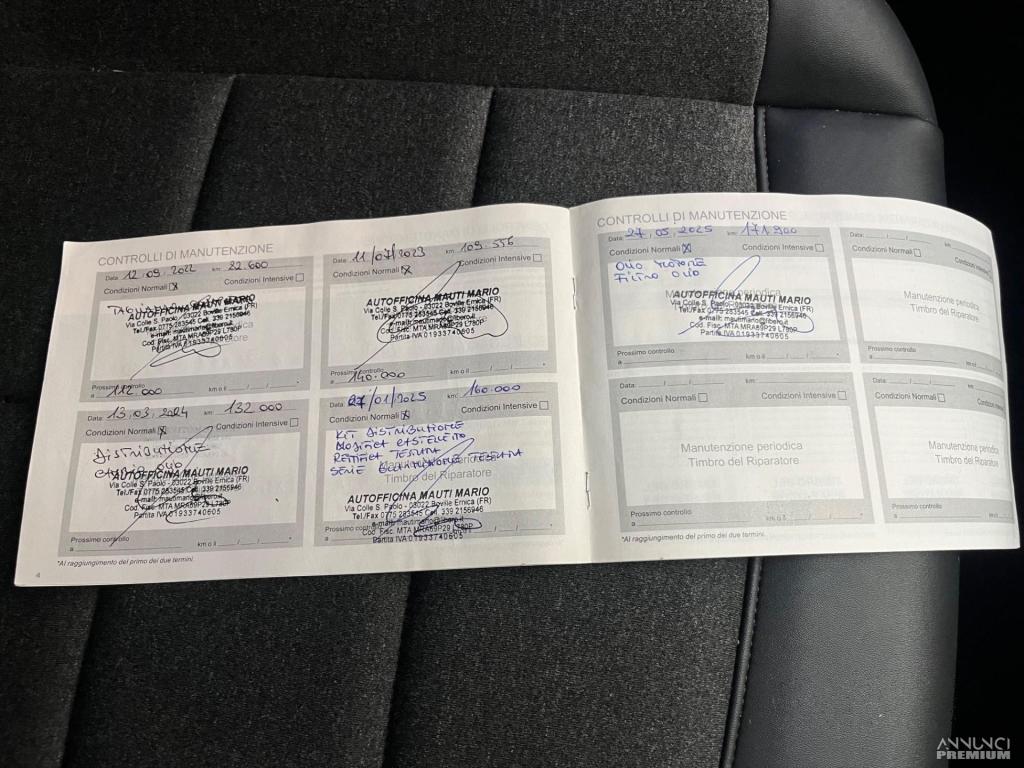 CONTROLLI DI MANUTENZIONE
Data 12.09.2022 km: 22.600
Condizioni Normali Condizioni Intensive
AUTOFFICINA MAUTI MARIO
Via Colle S. Paolo - 03022 Boville Ernica (FR)
Tel./Fax 0775 283545 Cell. 339 2156946
e-mail: mautimario@libero.it
Cod. Fisc. MTA MRA69P29 L780P
Partita IVA 01933740605
Prossimo controllo
a 112.000 km o il
Data: 11/07/2023 km: 109.556
Condizioni Normali Condizioni Intensive
AUTOFFICINA MAUTI MARIO
Via Colle S. Paolo - 03022 Boville Ernica (FR)
Tel./Fax 0775 283545 Cell. 339 2156946
e-mail: mautimario@libero.it
Cod. Fisc. MTA MRA69P29 L780P
Partita IVA 01933740605
Prossimo controllo
a 140.000 km o il
Data: 13.03.2024 km: 132000
Condizioni Normali Condizioni Intensive
DISTRIBUZIONE
OLIO
AUTOFFICINA MAUTI MARIO
Via Colle S. Paolo - 03022 Boville Ernica (FR)
Tel./Fax 0775 283545 Cell. 339 2156946
e-mail: mautimario@libero.it
Cod. Fisc. MTA MRA69P29 L780P
Partita IVA 01933740605
Prossimo controllo
a km o il
Data: /01/2025 km: 160.000
Condizioni Normali Condizioni Intensive
KIT DISTRIBUZIONE
RETTIFICA TESTATA
SERIE GUARNIZIONE TESTATA
AUTOFFICINA MAUTI MARIO
Via Colle S. Paolo - 03022 Boville Ernica (FR)
Tel./Fax 0775 283545 Cell. 339 2156946
e-mail: mautimario@libero.it
Cod. Fisc. MTA MRA69P29 L780P
Partita IVA 01933740605
Prossimo controllo
a km o il
*Al raggiungimento del primo dei due termini.
4
CONTROLLI DI MANUTENZIONE
Data: 27.05.2025 km: 171900
Condizioni Normali Condizioni Intensive
OLIO MOTORE
FILTRO OLIO
AUTOFFICINA MAUTI MARIO
Via Colle S. Paolo - 03022 Boville Ernica (FR)
Tel./Fax 0775 283545 Cell. 339 2156946
e-mail: mautimario@libero.it
Cod. Fisc. MTA MRA69P29 L780P
Partita IVA 01933740605
Prossimo controllo
a km o il
Data: km:
Condizioni Normali
Manutenzione periodica
Timbro del Riparatore
Prossimo controllo
a
Condizioni Normali Condizioni Intensive
Manutenzione periodica
Timbro del Riparatore
Prossimo controllo
a km o il
Condizioni Normali Condizioni
Manutenzione periodica
Timbro del Riparatore
Prossimo controllo
a
*Al raggiungimento del primo dei due termini.
ANNUNCI
PREMIUM